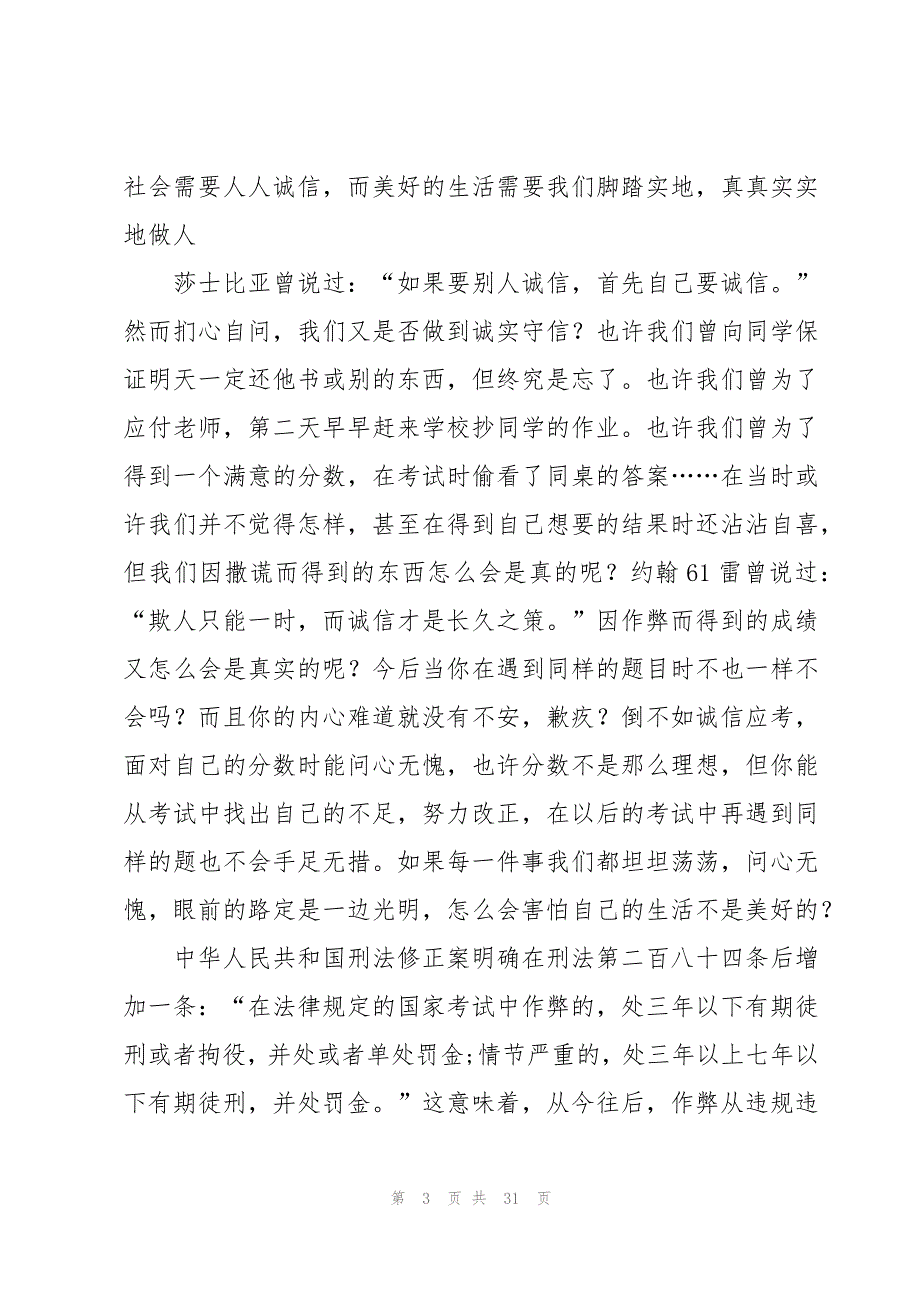 社会需要人人诚信，而美好的生活需要我们脚踏实地，真真实实
地做人
莎士比亚曾说过：“如果要别人诚信，首先自己要诚信。”
然而扪心自问，我们又是否做到诚实守信？也许我们曾向同学保
证明天一定还他书或别的东西，但终究是忘了。也许我们曾为了
应付老师，第二天早早赶来学校抄同学的作业。也许我们曾为了
得到一个满意的分数，在考试时偷看了同桌的答案……在当时或
许我们并不觉得怎样，甚至在得到自己想要的结果时还沾沾自喜，
但我们因撒谎而得到的东西怎么会是真的呢？约翰61雷曾说过：
“欺人只能一时，而诚信才是长久之策。”因作弊而得到的成绩
又怎么会是真实的呢？今后当你在遇到同样的题目时不也一样不
会吗？而且你的内心难道就没有不安，歉疚？倒不如诚信应考，
面对自己的分数时能问心无愧，也许分数不是那么理想，但你能
从考试中找出自己的不足，努力改正，在以后的考试中再遇到同
样的题也不会手足无措。如果每一件事我们都坦坦荡荡，问心无
愧，眼前的路定是一边光明，怎么会害怕自己的生活不是美好的？
中华人民共和国刑法修正案明确在刑法第二百八十四条后增
加一条：“在法律规定的国家考试中作弊的，处三年以下有期徒
刑或者拘役，并处或者单处罚金;情节严重的，处三年以上七年以
下有期徒刑，并处罚金。”这意味着，从今往后，作弊从违规违
第 3 页 共 31 页